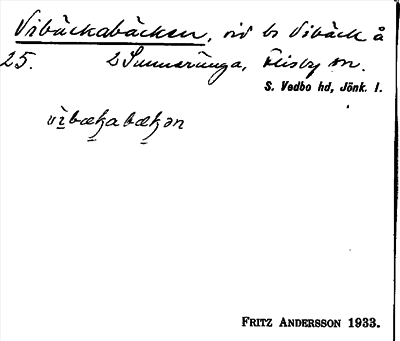 Vibäckabäcken, vid bs Vibäck å
25. 2 Sunnerånga, Flisby sn.
S. Vedbo hd, Jönk. l.
vìbæʗabæʗən
FRITZ ANDERSSON 1933.